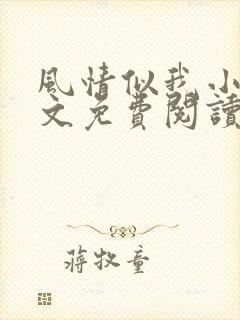 風情似我小
文免費閱讀
蔣牧童